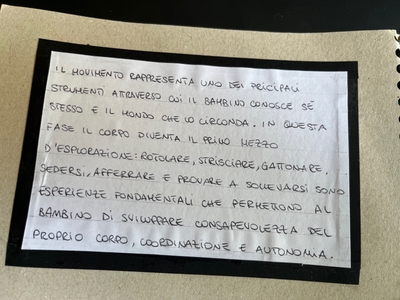 IL MOVIMENTO RAPPRESENTA UNO DEI PRICIPALI
STRUMENTI ATTRAVERSO CUI IL BAMBINO CONOSCE SÉ
STESSO E IL MONDO CHE LO CIRCONDA. IN QUESTA
FASE IL CORPO DIVENTA IL PRIMO MEZZO
D'ESPLORAZIONE: ROTOLARE, STRISCIARE, GATTONARE,
SEDERSI, AFFERRARE E PROVARE A SOLLEVARSI SONO
ESPERIENZE FONDAMENTALI CHE PERMETTONO AL
BAMBINO DI SVILUPPARE CONSAPEVOLEZZA DEL
PROPRIO CORPO, COORDINAZIONE E AUTONOMIA.